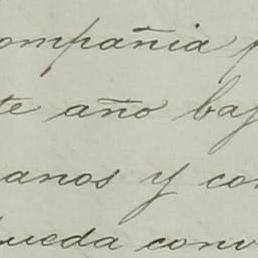 ompañia p
te año baj
anos y con
queda conv